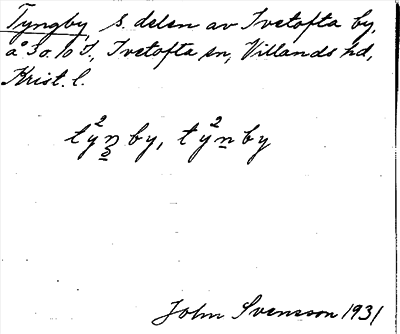 Tyngby s. delen av Ivetofta by,
å 30.10 I., Ivetofta sn, Villands hd,
Krist. l.
t²yŋ̲by, t²yn̲by
John Svensson 1931